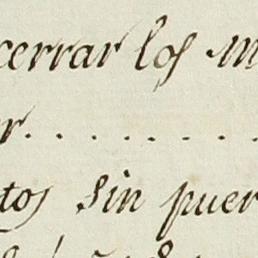 cerrar los m
r. . . . . . . .
tos sin puer